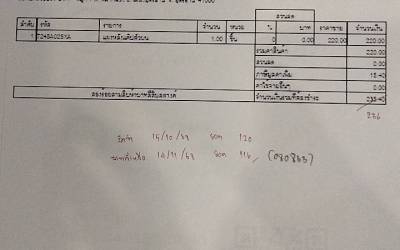 ส่วนลด
ลำดับ รหัส รายการ จำนวน หน่วย % บาท ราคาขาย จำนวนเงิน
1 1.00 ชิ้น 0 0.00 220.00 220.00
รวมค่าสินค้า 220.00
ส่วนลด 0.00
ภาษีมูลค่าเพิ่ม 15.40
ค่าใช้จ่ายอื่นๆ 0.00
สองร้อยสามสิบห้าบาทสี่สิบสตางค์ จำนวนเงินรวมที่ต้องชำระ 235.40
236
15/10/63 ยอด 120
14/11/63 ยอด 116